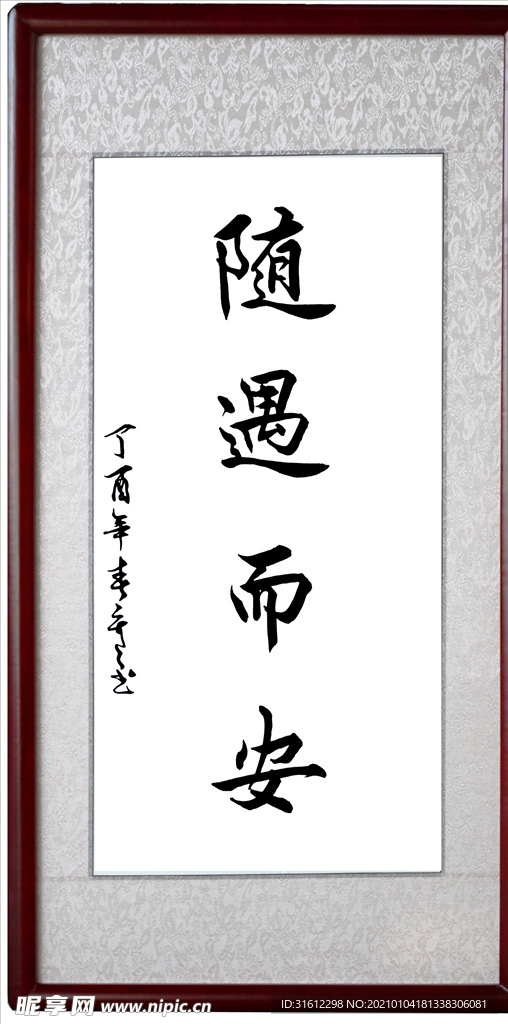 随遇而安
丁酉年春
昵享网 www.nipic.cn
ID:31612298 NO:20210104181338306081